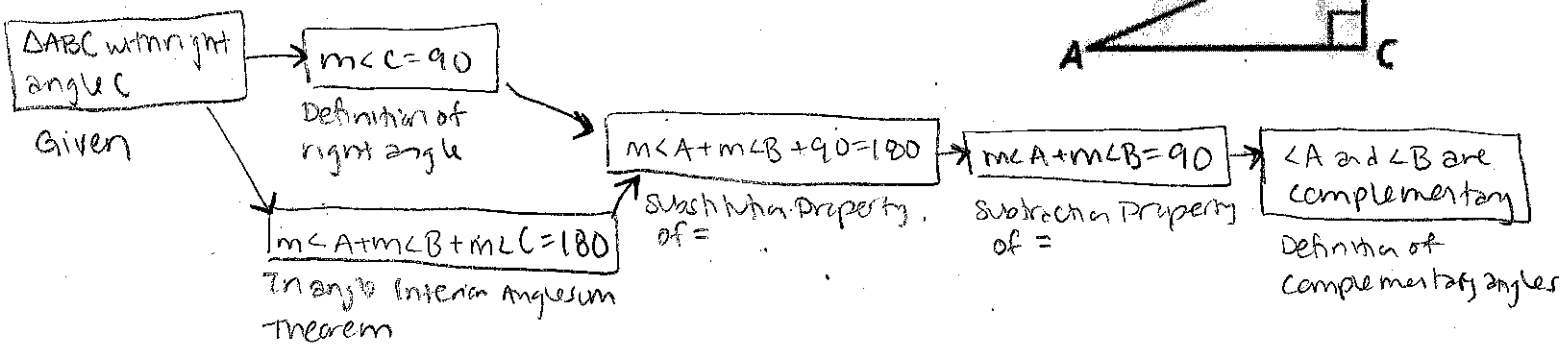 A
C
ΔABC with right
angle C
Given
m<C=90
Definition of
right angle
m<A+m<B+m<C=180
Triangle Interior Anglesum
Theorem
m<A+m<B+90=180
Substitution Property
of =
m<A+m<B=90
Subtraction Property
of =
<A and <B are
complementary
Definition of
complementary angles